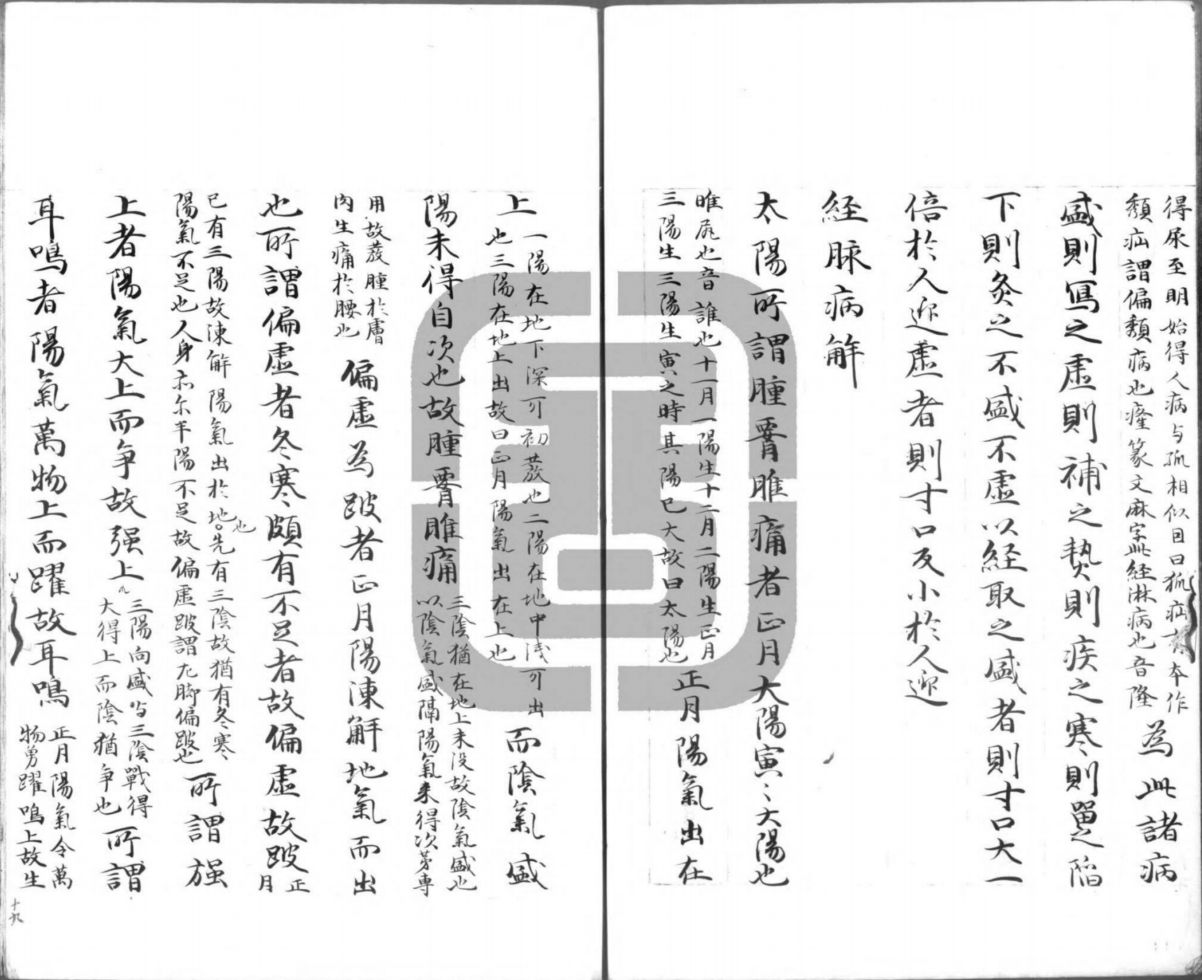 得尿至明始得人病与狐相似因曰狐疝
本作
頽疝謂偏頽病也癃篆文麻字此経淋病也音隆
為此諸病
盛則寫之虚則補之熱則疾之寒則畄之陷
下則灸之不盛不虚以経取之盛者則寸口大一
倍於人迎虚者則寸口反小於人迎
経脉病解
太陽所謂腫䐜脽痛者正月大陽寅〻大陽也
脽尻也音誰也十一月一陽生十二月二陽生正月
三陽生三陽生寅之時其陽已大故曰太陽也
正月陽氣出在
上
一陽在地下深可初蕟也二陽在地中淺可出
也三陽在地上出故曰正月陽氣出在上也
而陰氣盛
陽未得自次也故腫䐜脽痛
三陰猶在地上未没故陰氣盛也
以陰氣盛隔陽氣未得次苐専
用故蕟腫於膚
内生痛於腰也
偏虚為跛者正月陽凍解地氣而出
也所謂偏虚者冬寒頗有不足者故偏虚故跛
正
月
已有三陽故凍解陽氣出於地也先有三陰故猶有冬寒
陽氣不足也人身亦尓半陽不足故偏虚跛謂左脚偏跛也
所謂强
上者陽氣大上而争故强上
三陽向盛与三陰戰得
大得上而陰猶争也
所謂
耳鳴者陽氣萬物上而躍故耳鳴
正月陽氣令萬
物勇躍鳴上故生
十九